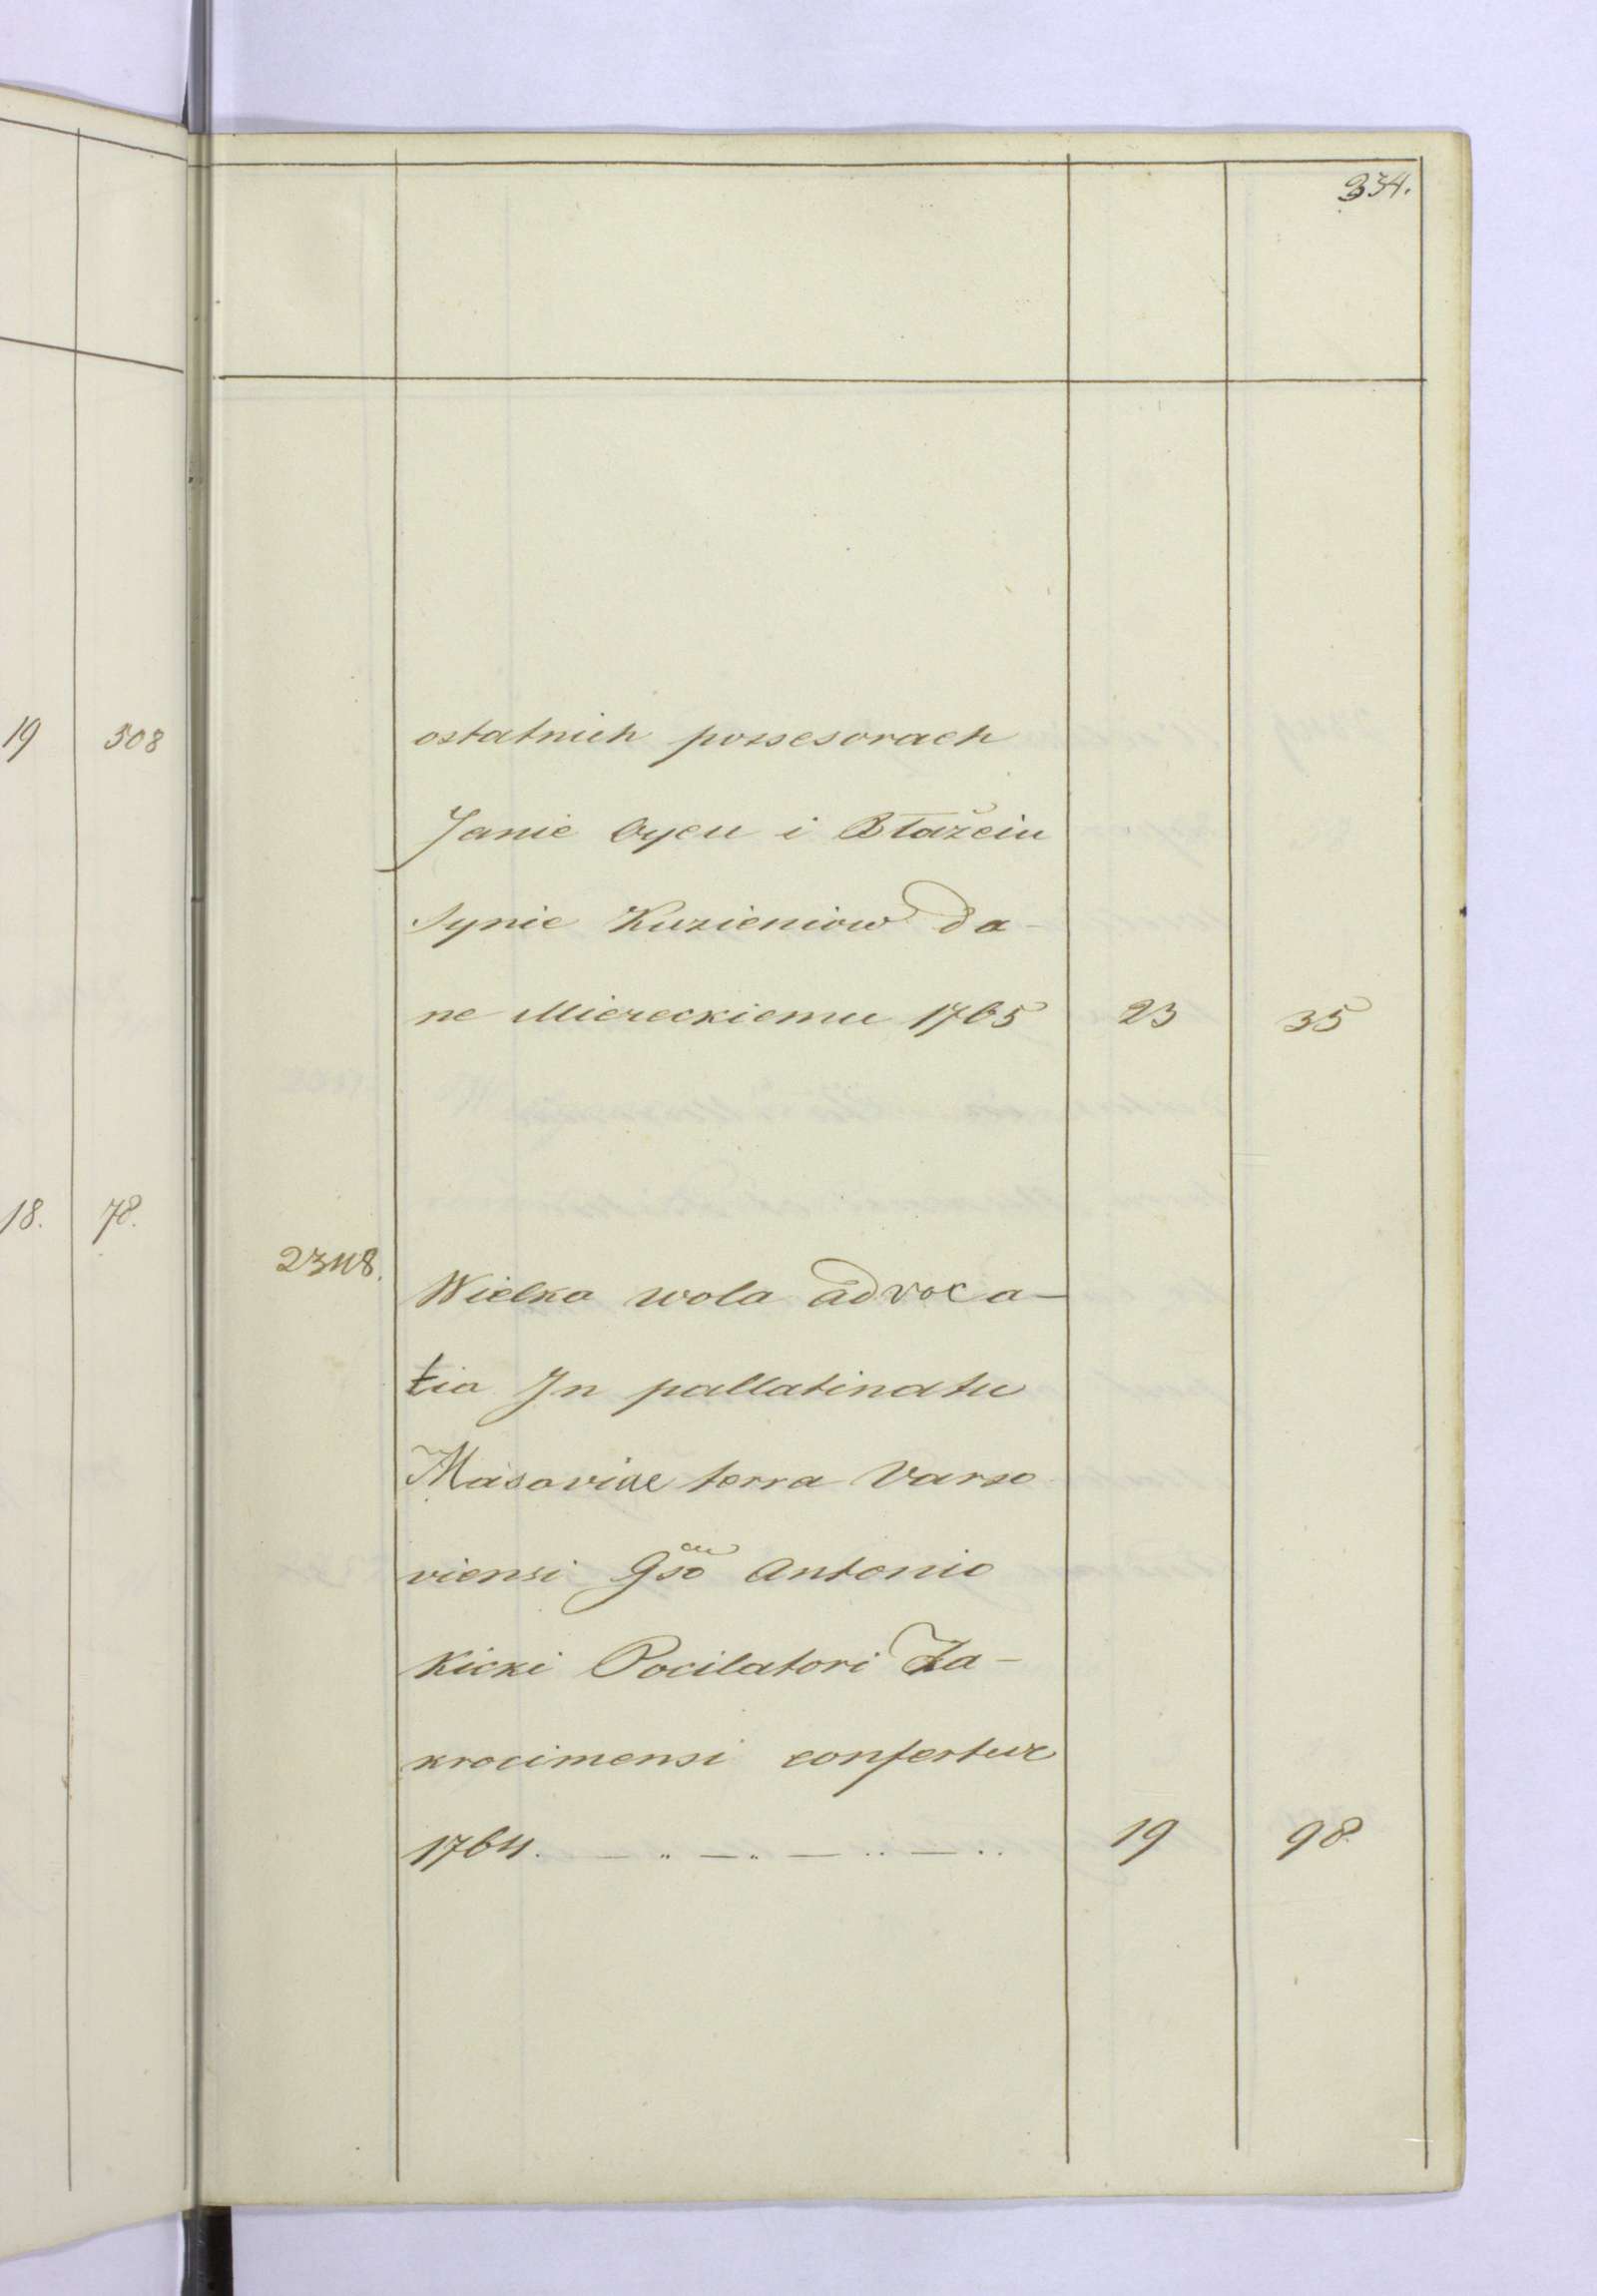 334.
19 508
ostatnich possesorach
Janie Oycu i Błażeiu
Synie Kuzieniow da-
ne Miereckiemu 1765 23 35
18. 78.
2348.
Wielka wola advoca-
tia In pallatinatu
Masoviae terra Varso
viensi Gso Antonio
Kicki Pocilatori Za-
krocimensi confertur
1764. 19 98